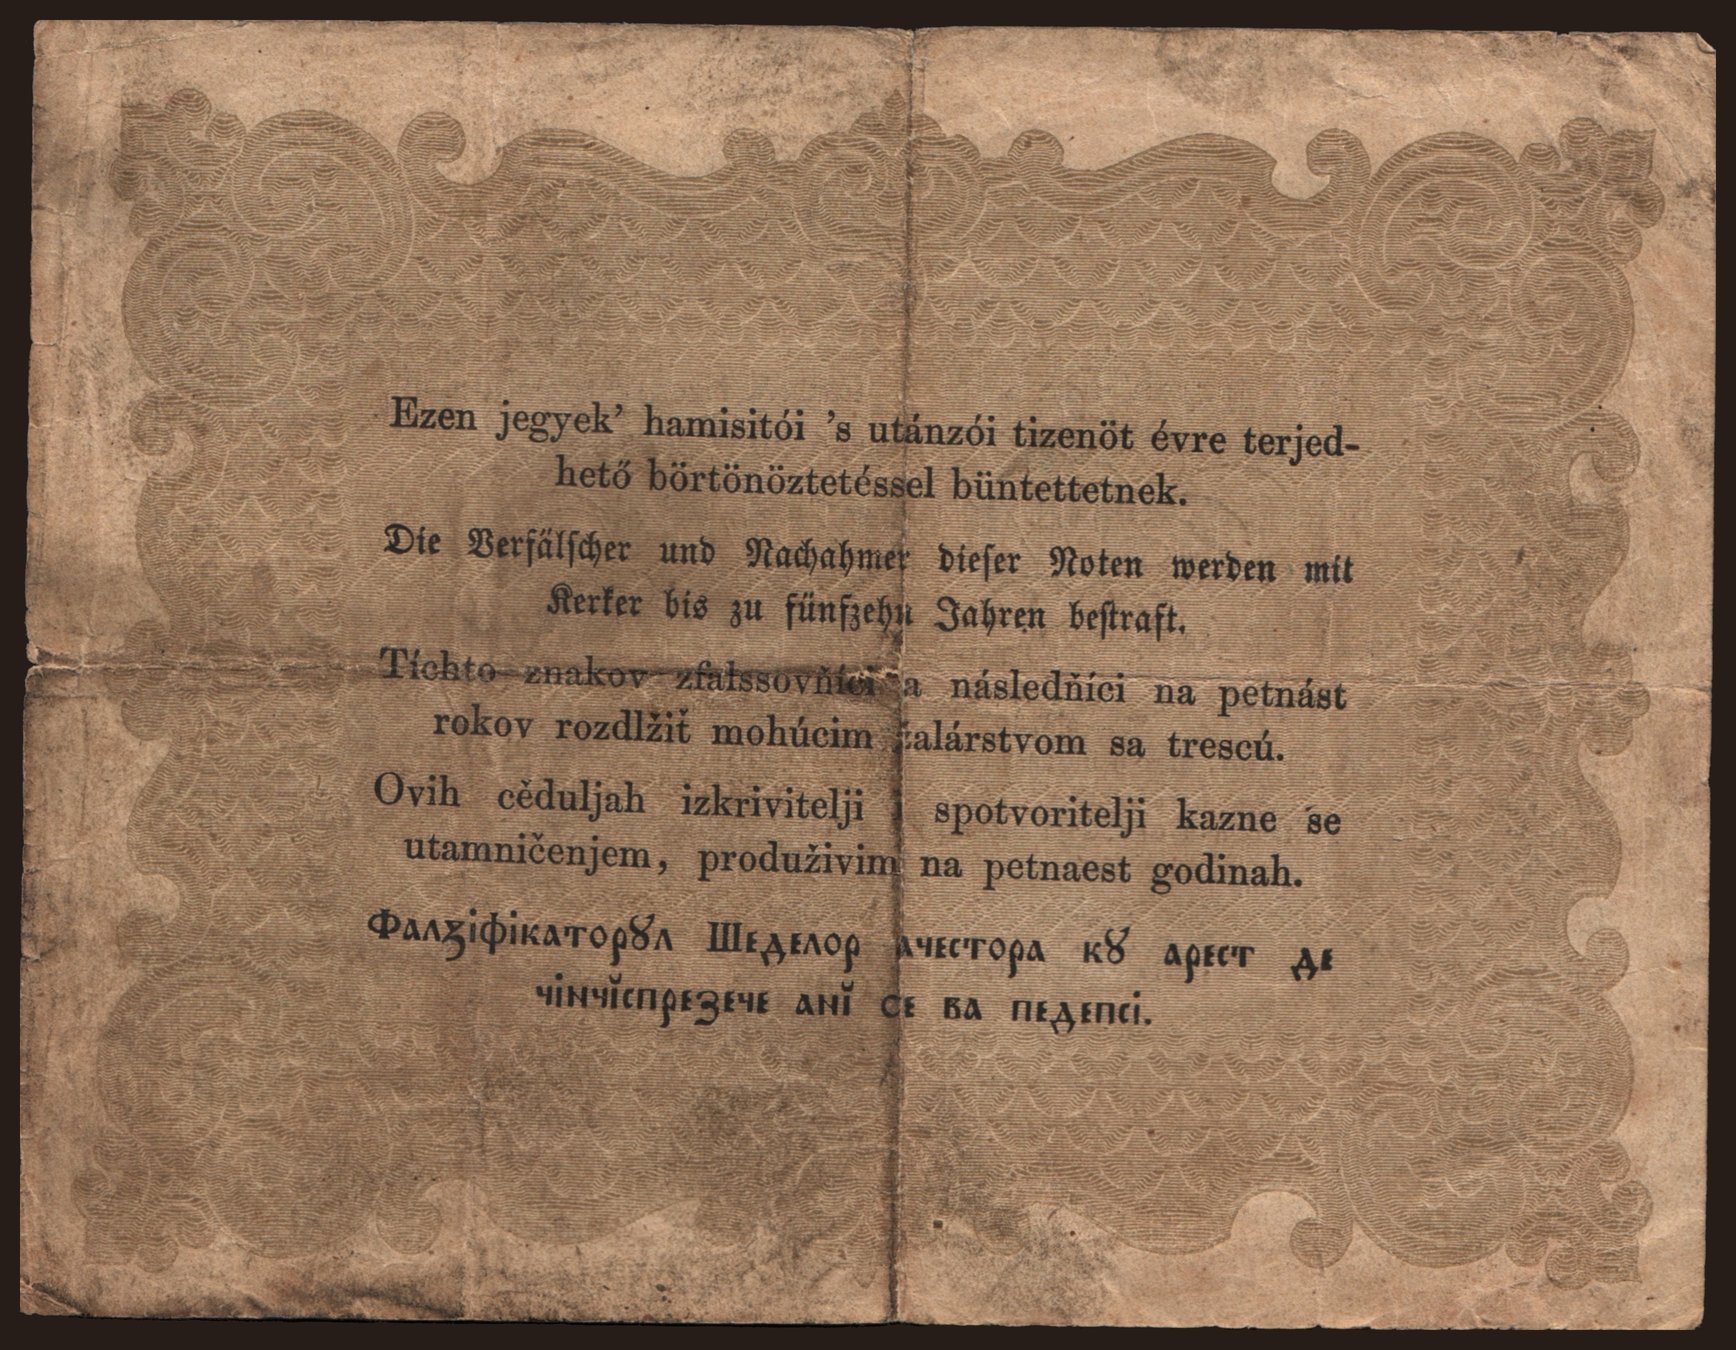 Ezen jegyek’ hamisitói ’s utánzói tizenöt évre terjed-
hető börtönöztetéssel büntettetnek.
Die Verfälscher und Nachahmer dieser Noten werden mit
Kerker bis zu fünfzehn Jahren bestraft.
Tíchto znakov zfalssovňíci a následňíci na petnást
rokov rozdlžiť mohúcim žalárstvom sa trescú.
Ovih cěduljah izkrivitelji i spotvoritelji kazne se
utamničenjem, produživim na petnaest godinah.
Фалꙁіфікаторꙋл Шеделор ачестора кꙋ арест де
чінчĭспрезече анĭ се ва педепсі.